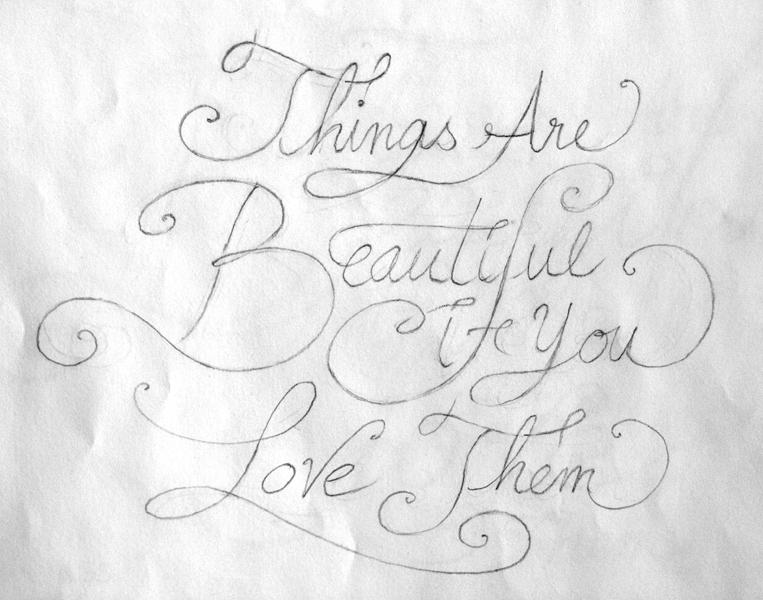 Things Are
Beautiful
If You
Love Them